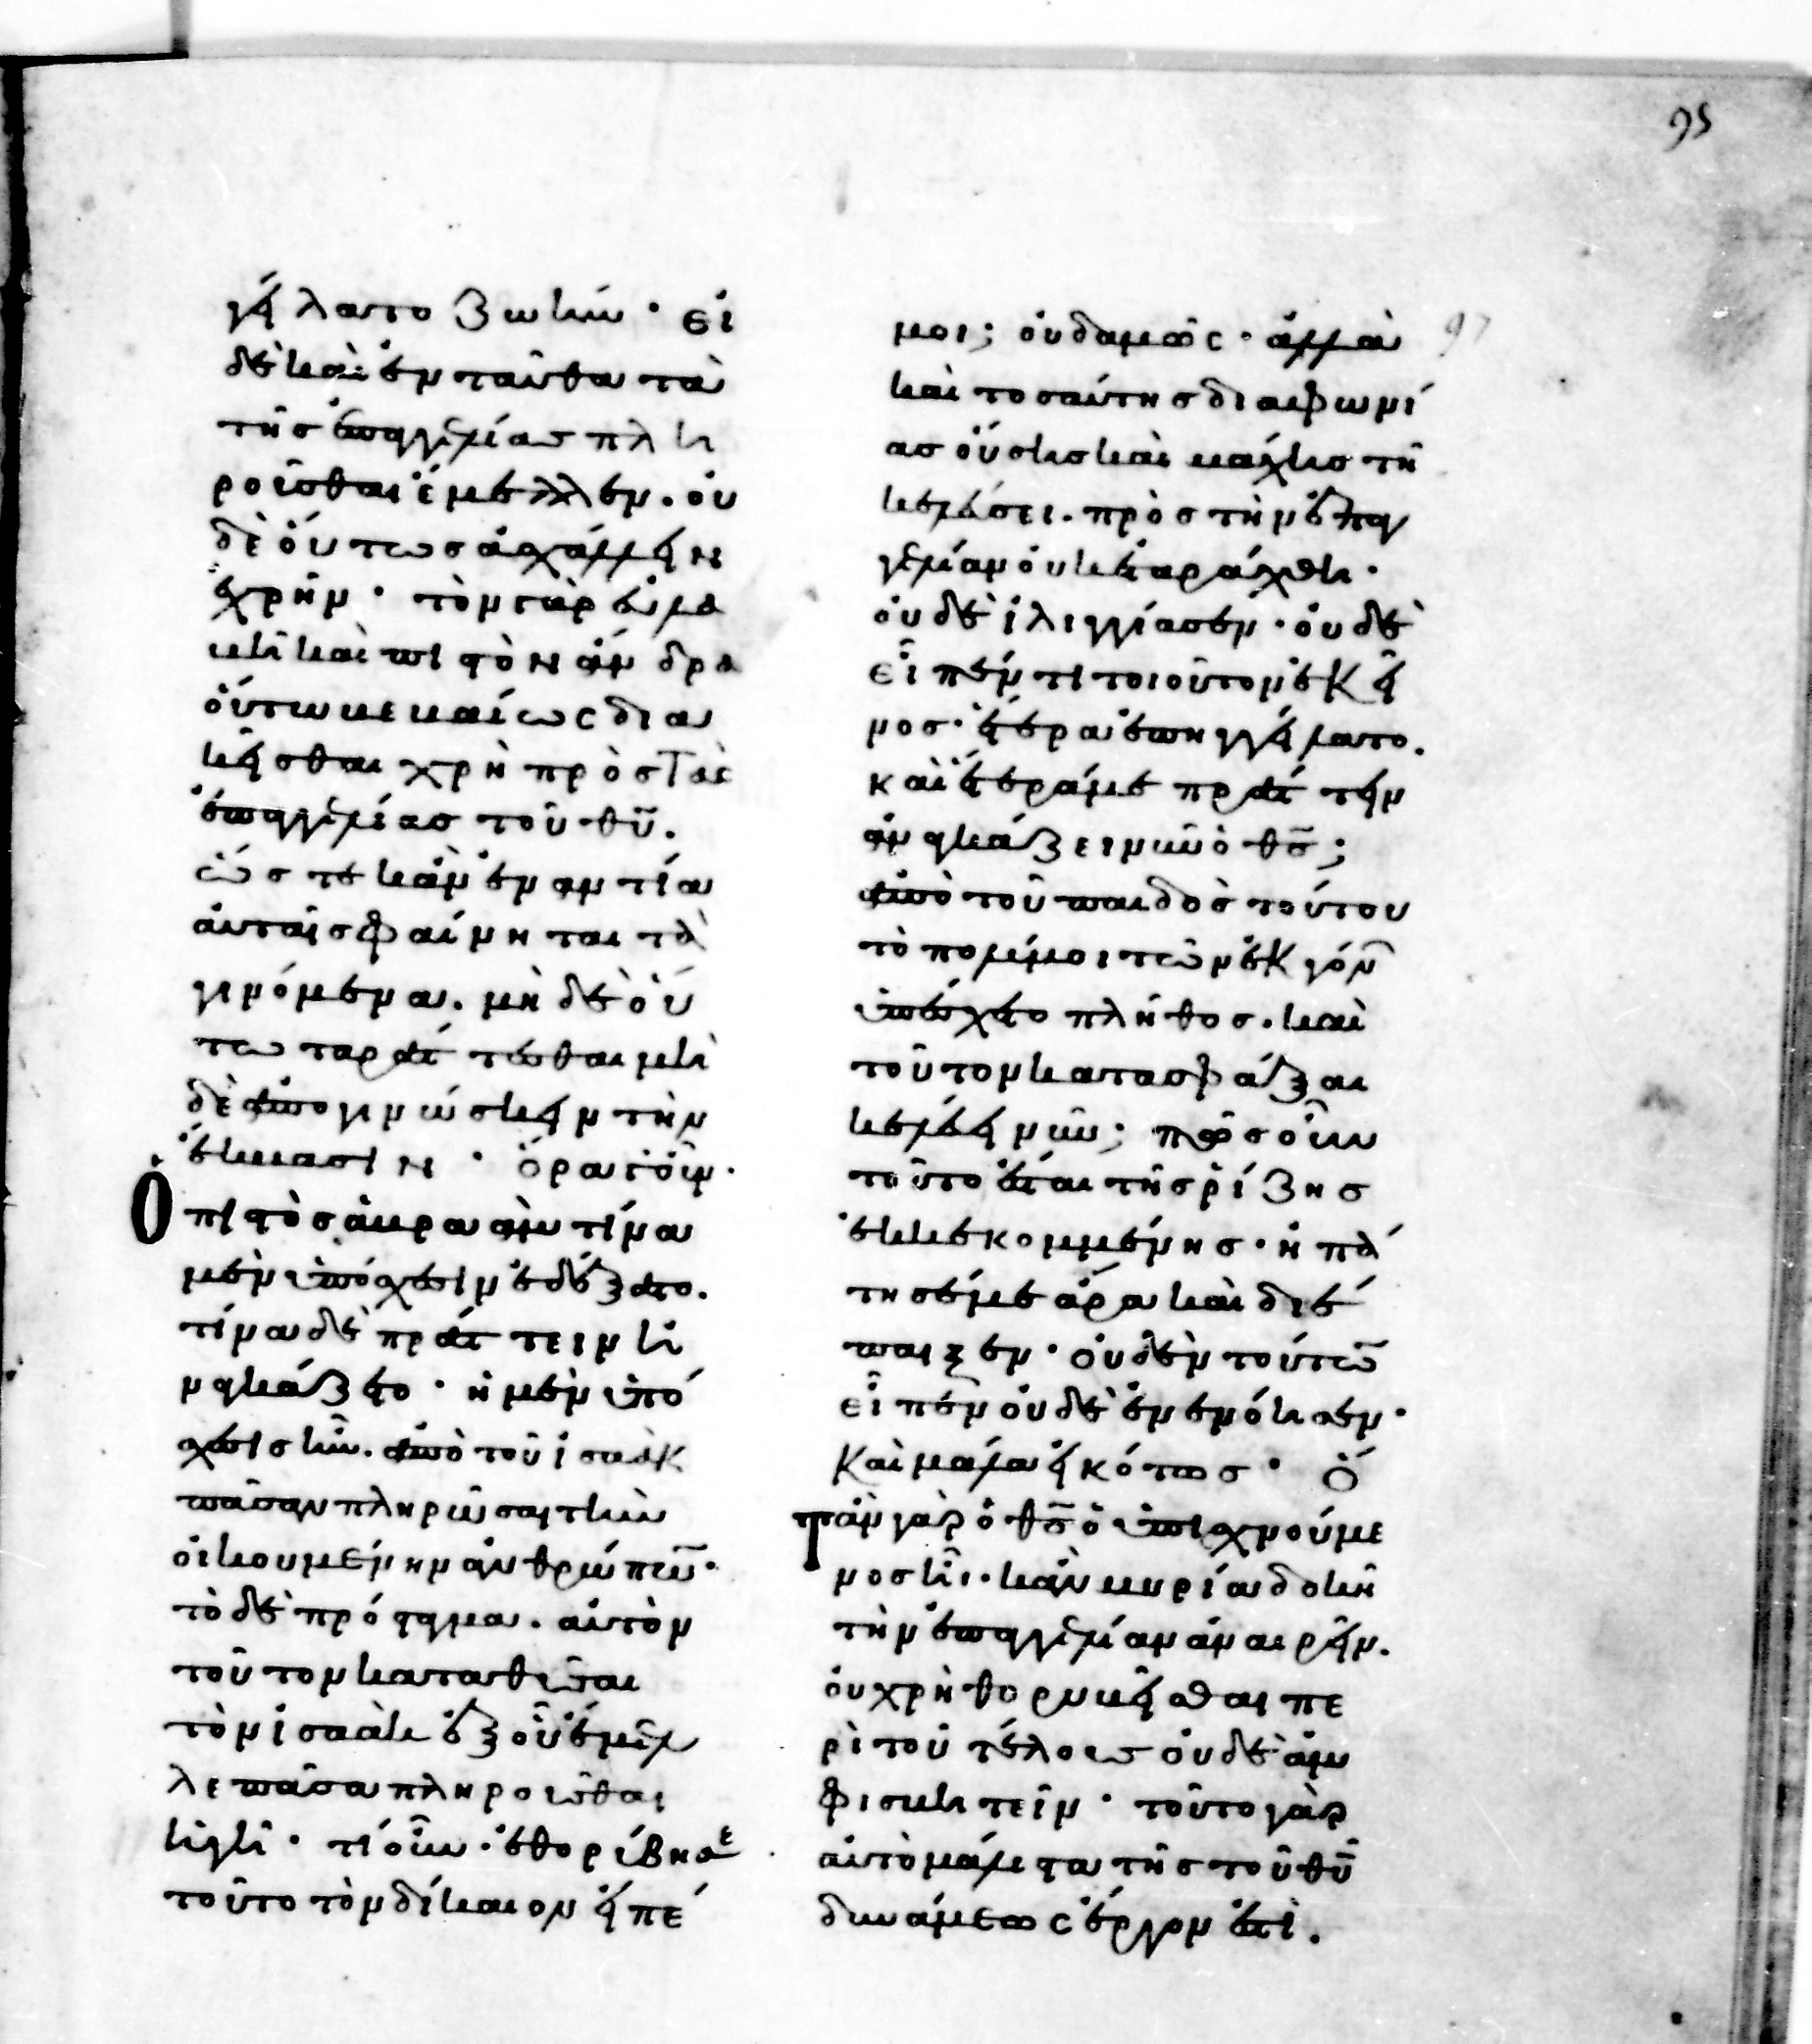 95
97
γείλατο ζωήν· εἰ
δὲ καὶ ἐνταῦθα τὰ
τῆς ἐπαγγελίας πλη
ροῦσθαι ἔμελλεν. οὐ
δὲ οὕτως ἀσχάλλειν
ἐχρῆν· τὸν γὰρ εὐλα
βῆ καὶ πιστὸν ἄνδρα
οὕτω βεβαίως δια
κεῖσθαι χρὴ πρὸς τὰς
ἐπαγγελίας τοῦ θῦ.
ὥστε κἂν ἐναντία
αὐταῖς φαίνηται τὰ
γινόμενα. μηδὲ οὕ
τω ταράττεσθαι μη
δὲ ἀπογινώσκειν τὴν
ἔκβασιν· ὁρα γοῦν·
Ὁ πιστὸς ἄβρααμ τίνα
μὲν ὑπόσχεσιν ἐδέξατο.
τίνα δὲ πράττειν ἠ
ναγκάζετο· ἡ μὲν ὑπό
σχεσις ἦν. ἀπὸ τοῦ ἰσαὰκ
πᾶσαν πληρῶσαι τὴν
οἰκουμένην ἀνθρώπων·
τὸ δὲ πρόσταγμα. αὐτὸν
τοῦτον καταθῦσαι
τὸν ἰσαὰκ ἐξ οὗ ἔμελ
λε πᾶσα πληροῦσθαι
ἡ γῆ· τί οὖν· ἐθορύβησε
τοῦτο τὸν δίκαιον εἰπέ
μοι; οὐδαμῶς· ἀλλὰ
καὶ τοσαύτης διαφωνί
ας οὔσης καὶ μάχης τῇ
κελεύσει. πρὸς τὴν ἐπαγ
γελίαν οὐκ ἐταράχθη·
οὐδὲ ἰλιγγίασεν· οὐδὲ
εἶπέν τι τοιοῦτον ἐκεῖ
νος· ἕτερα ἐπηγγείλατο.
καὶ ἕτερά με πράττειν
ἀναγκάζει νῦν ὁ θς;
ἀπὸ τοῦ παιδὸς τούτου
τὸ πολύ μοι τῶν ἐκγόνων
ὑπέσχετο πλῆθος. καὶ
τοῦτον κατασφάξαι
κελεύει νῦν; πῶς οὖν
τοῦτο ἔσται τῆς ῥίζης
ἐκκεκομμένης· ἠπά
τησέ με ἄρα καὶ διέ
παιξεν· οὐδὲν τούτων
εἶπεν οὐδὲ ἐνενόησεν·
Καὶ μάλα εἰκότως· Ὅ
ταν γὰρ ὁ θς ὁ ὑπισχνούμε
νος ᾖ. κἂν μυρία δοκῇ
τὴν ἐπαγγελίαν ἀναιρεῖν.
οὐ χρὴ θορυβεῖσθαι πε
ρὶ τοῦ τέλους οὐδὲ ἀμ
φισβητεῖν· τοῦτο γὰρ
αὐτὸ μάλιστα τῆς τοῦ θῦ
δυνάμεως ἔργον ἐστί.